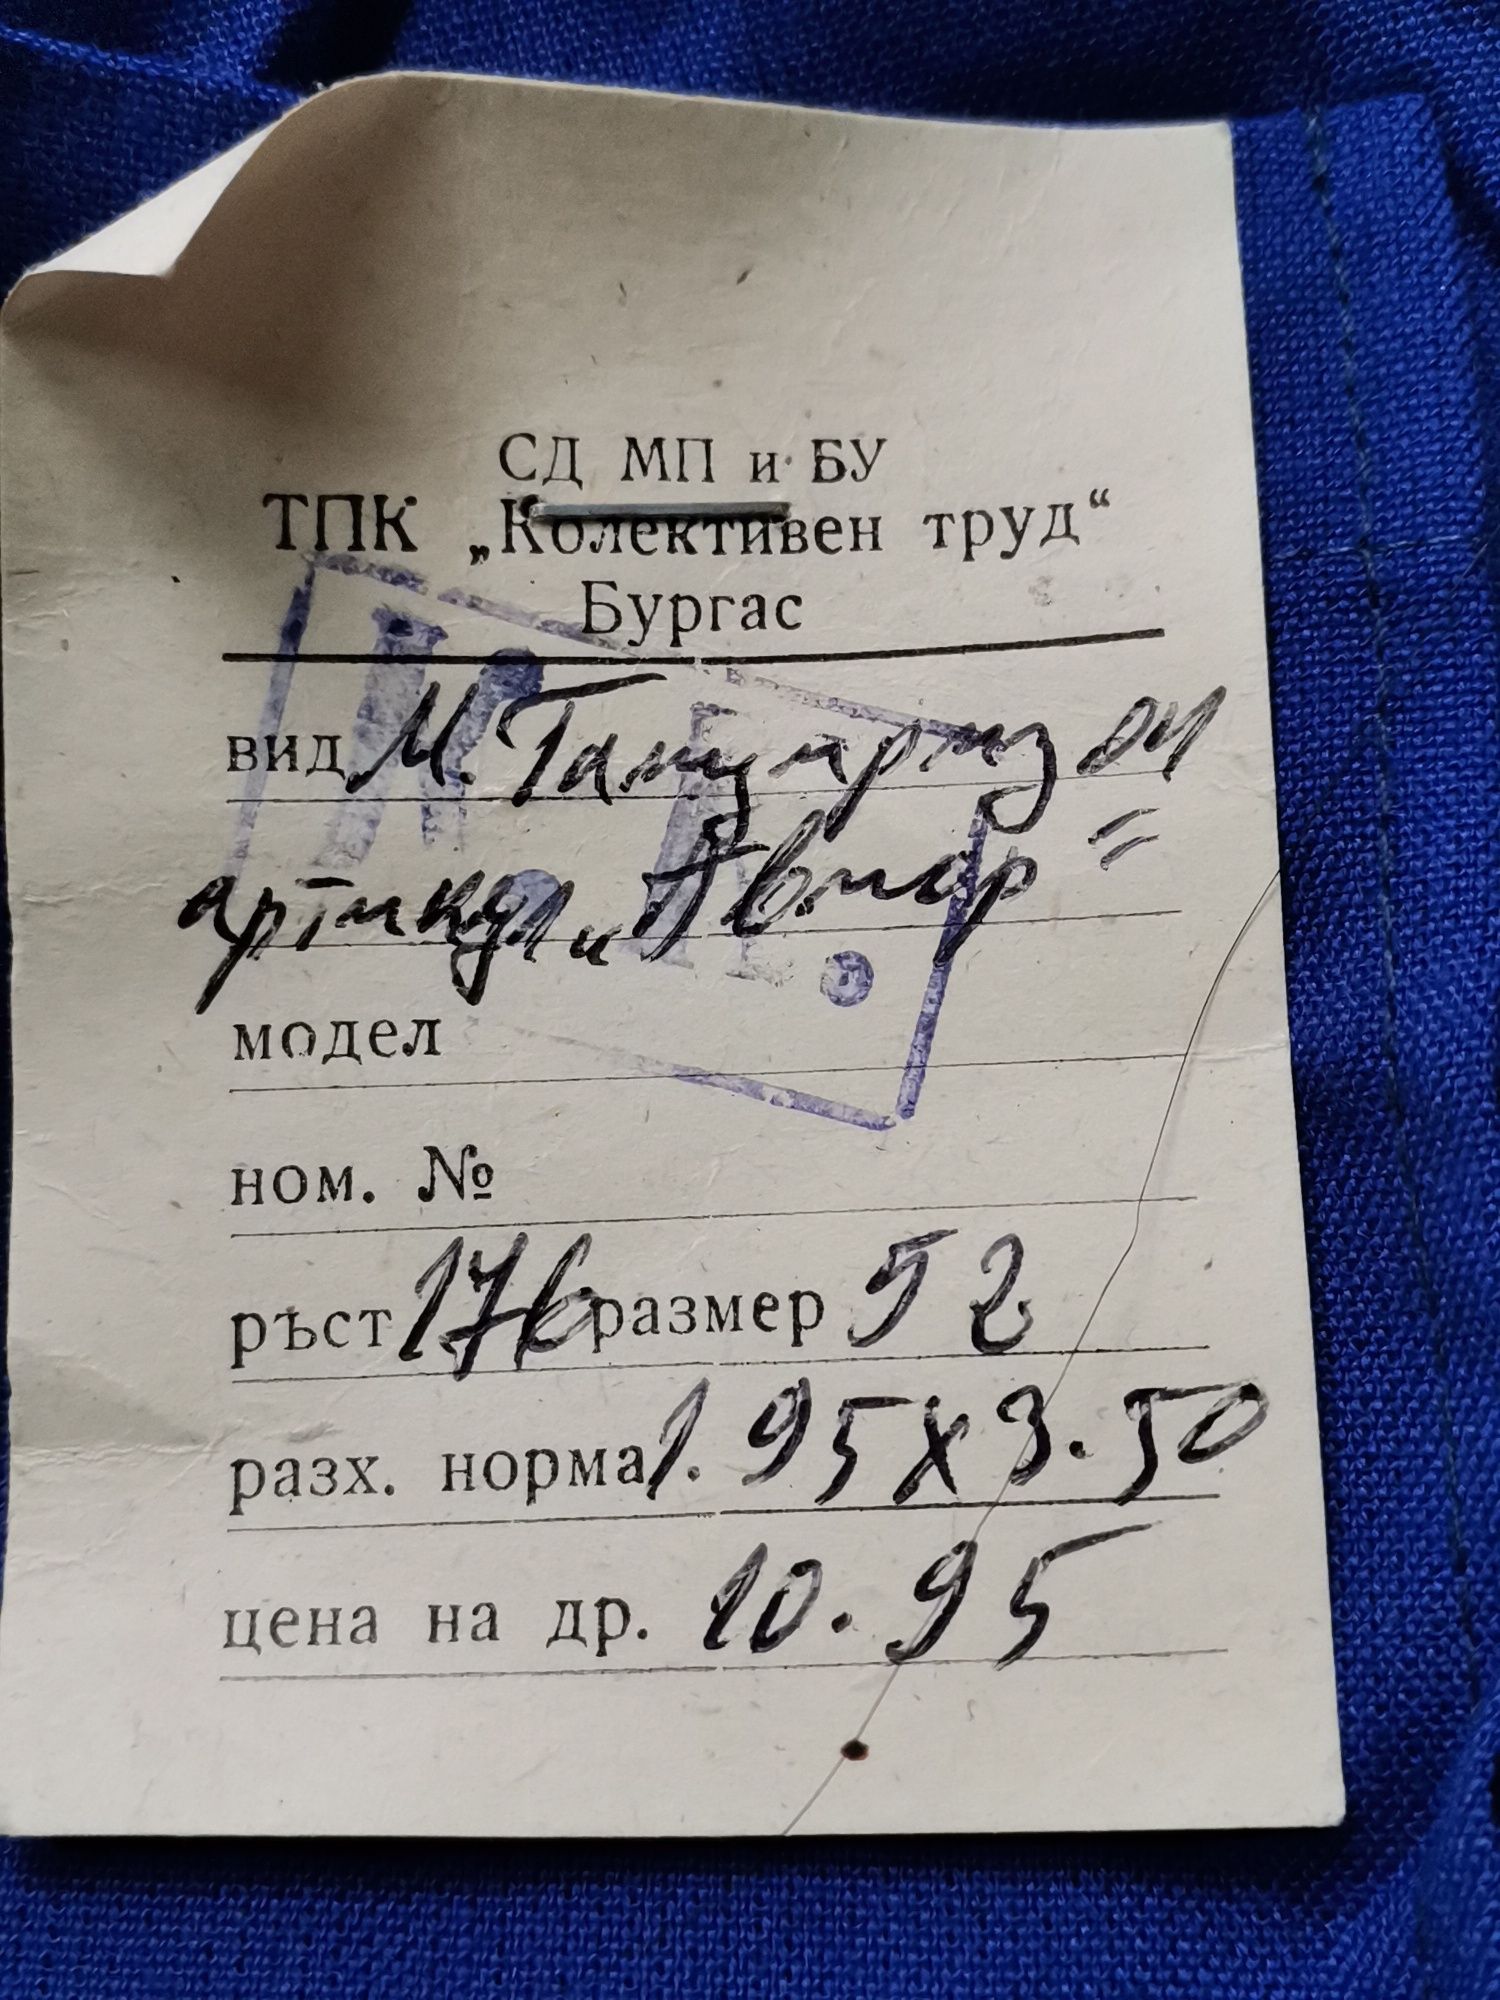 СД МП и БУ
ТПК „Колективен труд“
Бургас
вид М.
артикул „Автор"
модел
ном. №
ръст 176 размер 52
разх. норма 1.95 х 3.50
цена на др. 10.95